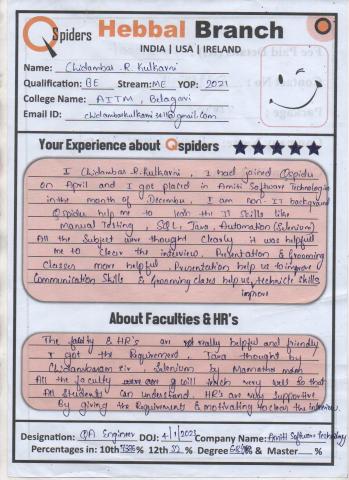 Qspiders Hebbal Branch
INDIA | USA | IRELAND
Name: Chidambar .R. Kulkarni
Qualification: BE Stream: ME YOP: 2021
College Name: AITM, Belagavi
Email ID:
Your Experience about Qspiders
I Chidambar .R. Kulkarni, I had joined Qspider
on April and I got placed in Amiti Software Technologies
in the month of December, I am non-IT background
Qspider help me to learn the IT skills like
manual Testing, SQL, Java, Automation (Selenium)
All the Subject were thought clearly it was helpful
me to clear the interview. Presentation & Grooming
Classes more helpful, Presentation help us to improve
Communication Skills & grooming class help us technicle skills
improve
About Faculties & HR's
The faculty & HR's are really helpful and friendly
I got the Requirement, Java thought by
Chidambaram sir, Selenium by Mamatha mam
All the faculty will teach very well so that
All Students can understand. HR's are very Supportive
By giving the Requirements & motivating to clear the interview.
Designation: QA Engineer DOJ: 4/1/2023 Company Name: Amiti Software Technology
Percentages in: 10th % 12th 52 % Degree % & Master %